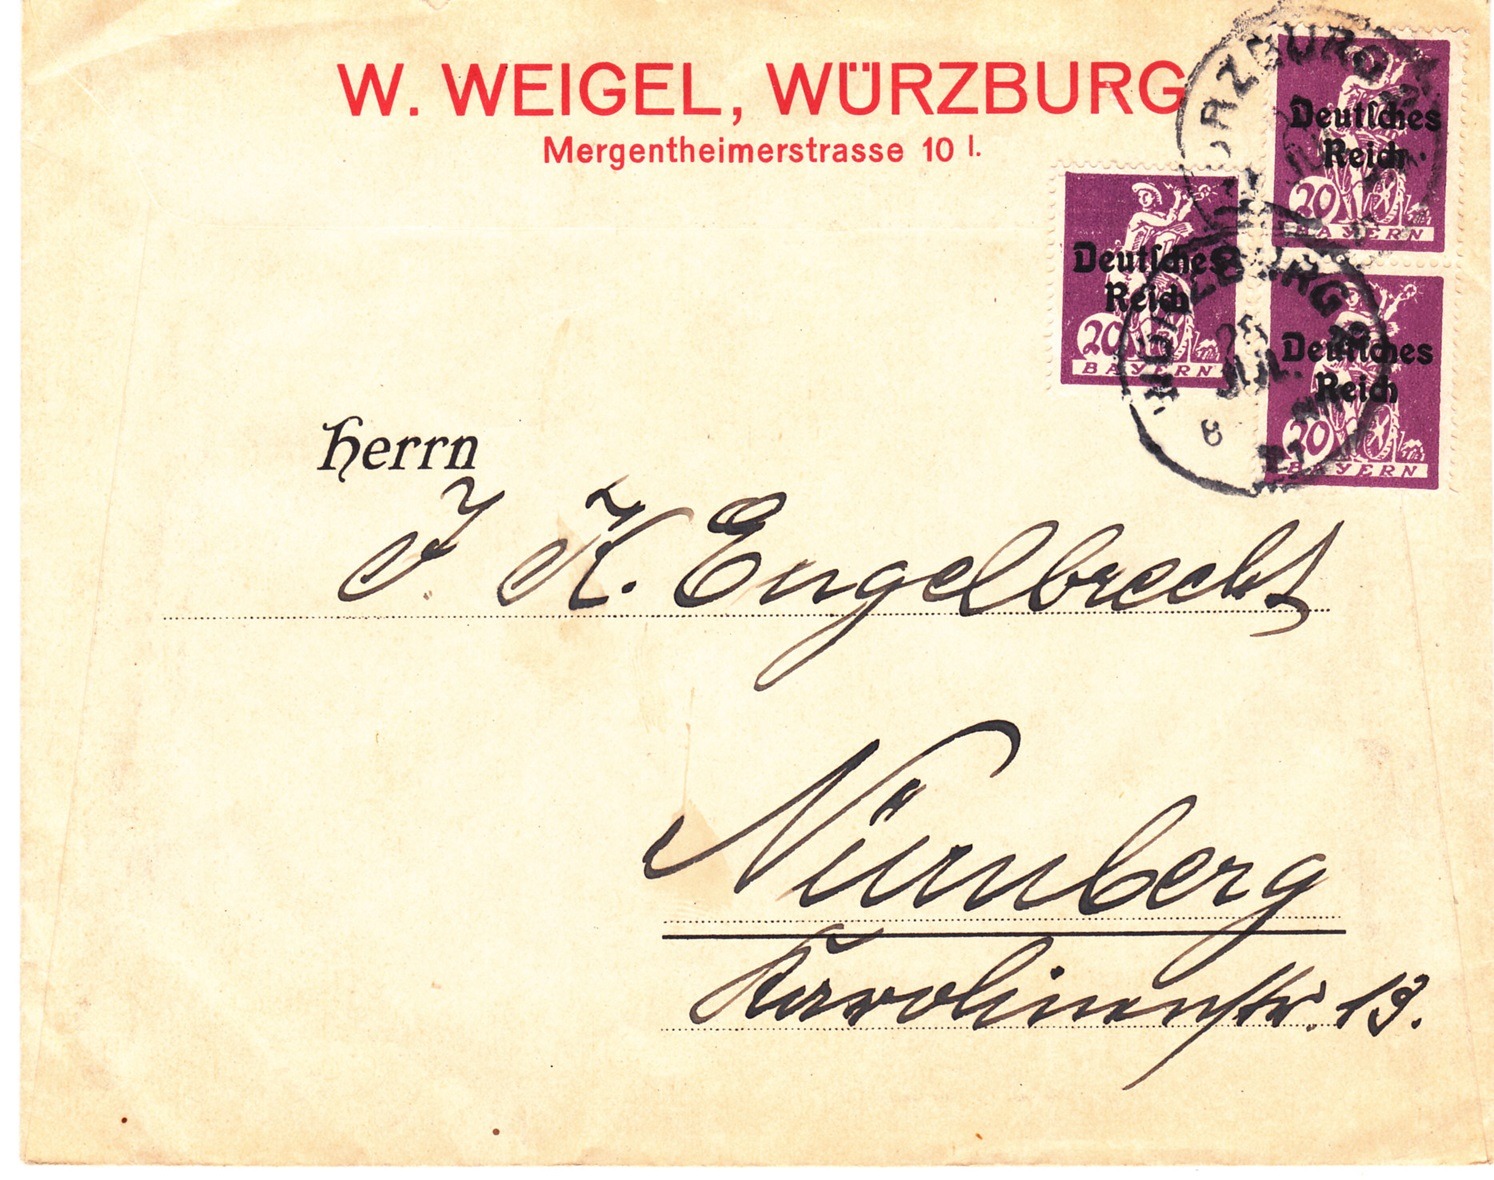 W. WEIGEL, WÜRZBURG
Mergentheimerstrasse 10 I.
WÜRZBURG
Deutsches
Reich
20
BAYERN
Deutsches
Reich
20
BAYERN
WÜRZBURG
JUL.
8
Deutsches
Reich
20
BAYERN
Herrn
J. K. Engelbrecht
Nürnberg
Karolinenstr. 13.